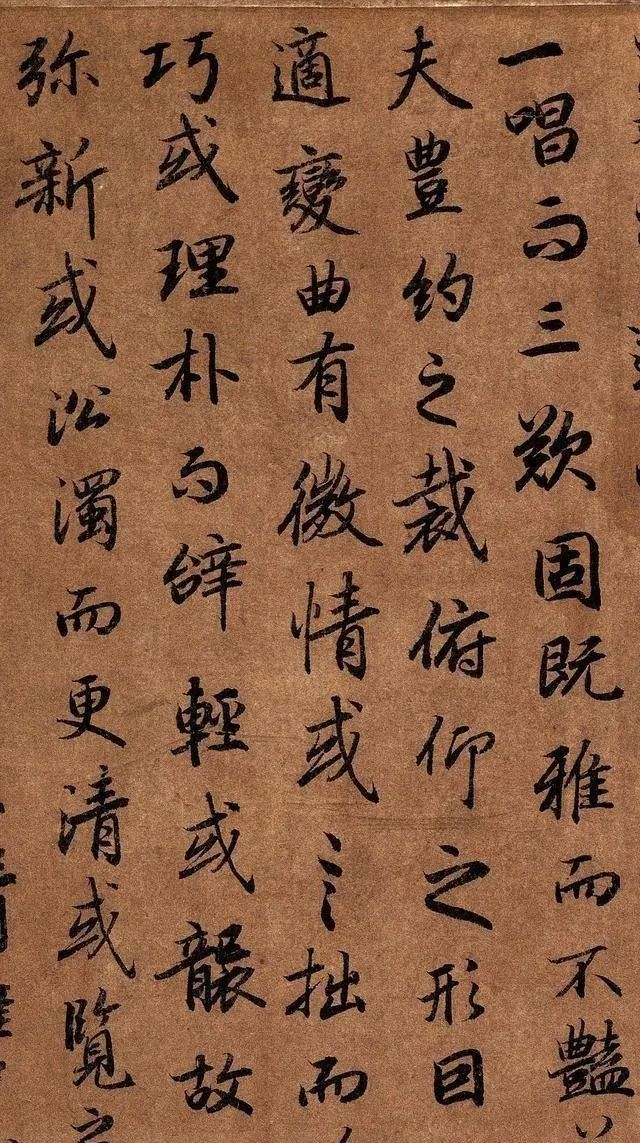 一唱而三歎固既雅而不豔
夫豐約之裁俯仰之形因
適變曲有微情或言拙而
巧或理朴而辭輕或襲故
弥新或㳂濁而更清或覧之